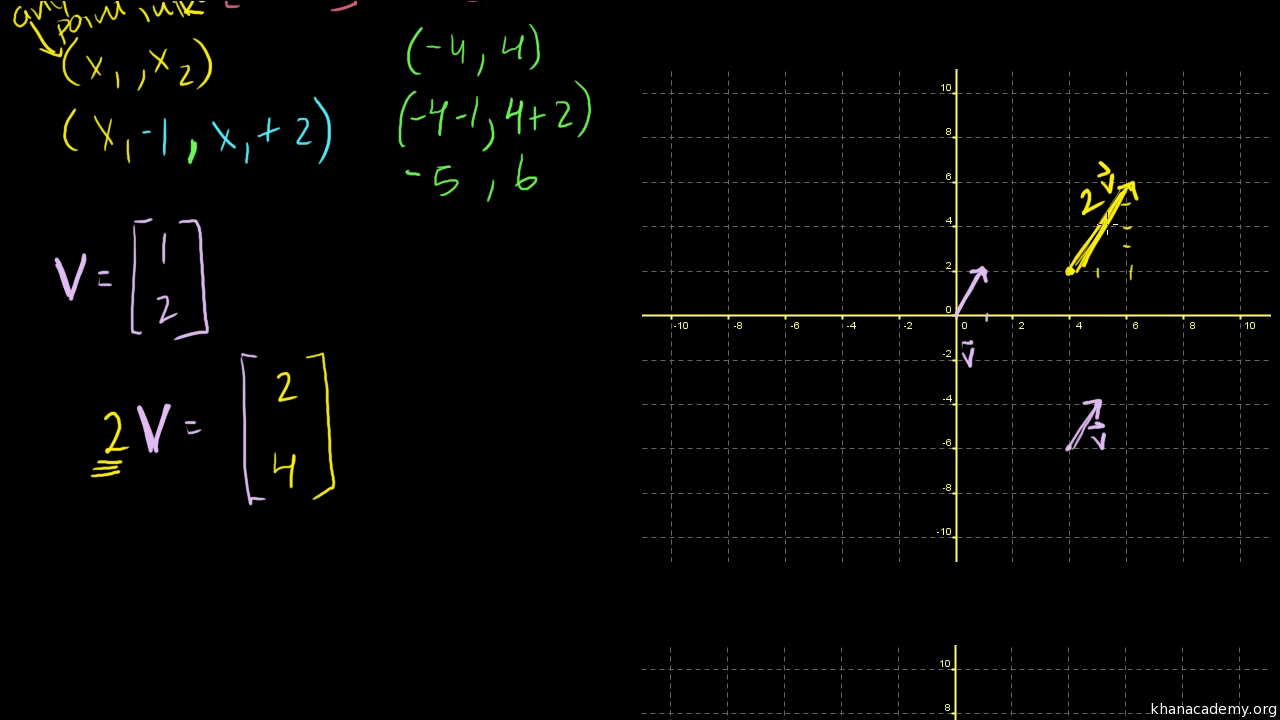 any
point in
(x₁, x₂)
(x₁-1, x₁+2)
(-4, 4)
(-4-1, 4+2)
-5, 6
V = [1
2]
2V = [2
4]
10
8
6
4
2
0
-10 -8 -6 -4 -2 0 2 4 6 8 10
-2
-4
-6
-8
-10
2v⃗
v⃗
v⃗
10
8
khanacademy.org